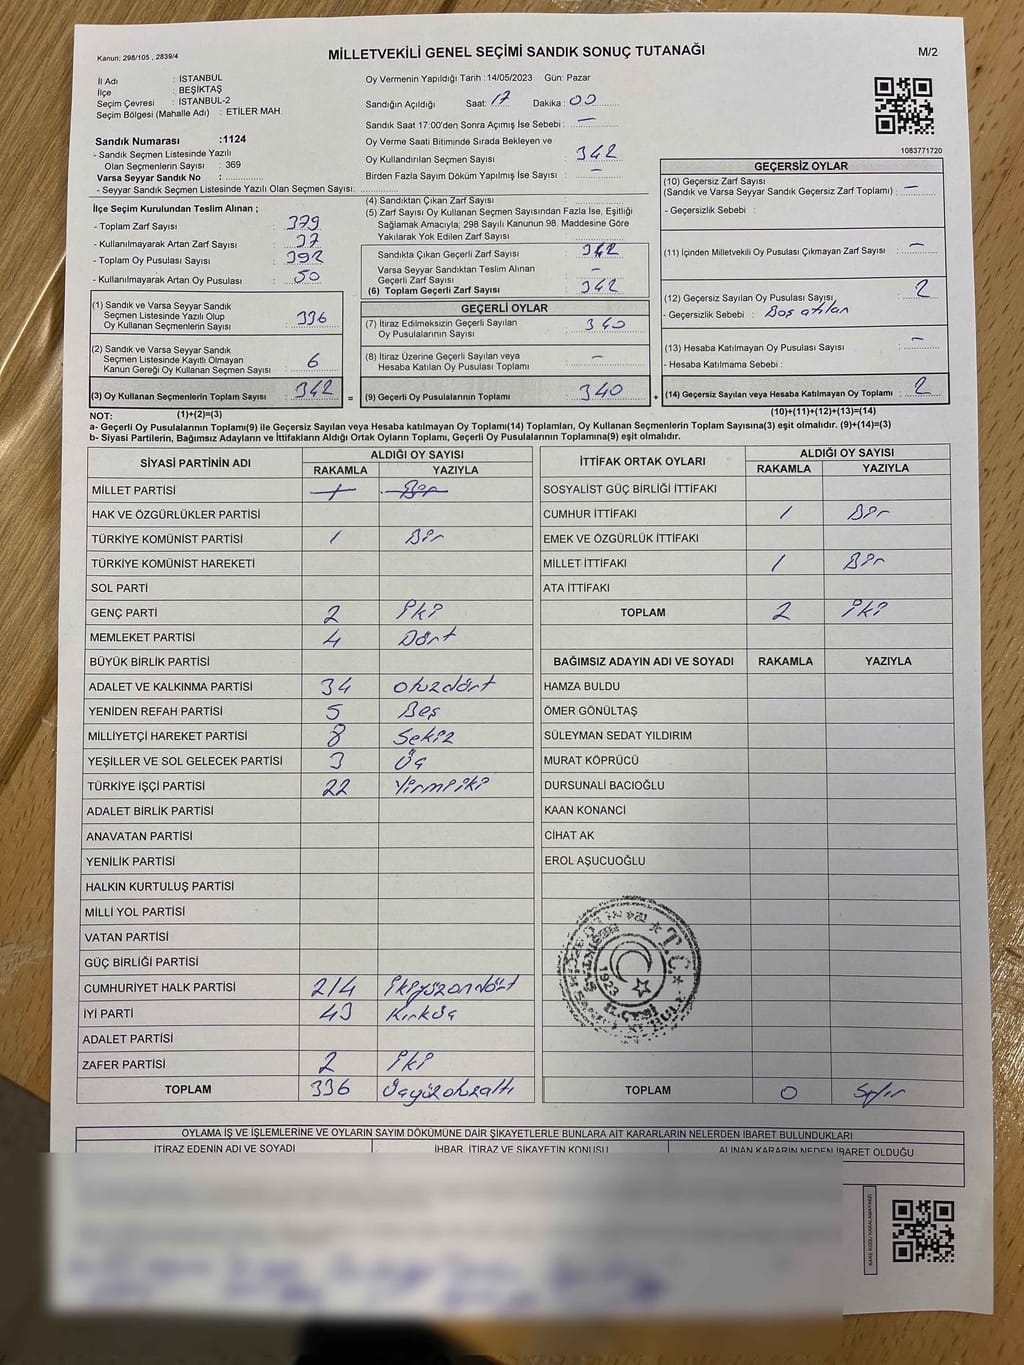 Kanun: 298/105 , 2839/4
MİLLETVEKİLİ GENEL SEÇİMİ SANDIK SONUÇ TUTANAĞI
M/2
İl Adı : İSTANBUL
İlçe : BEŞİKTAŞ
Seçim Çevresi : İSTANBUL-2
Seçim Bölgesi (Mahalle Adı) : ETİLER MAH.
Sandık Numarası :1124
- Sandık Seçmen Listesinde Yazılı
Olan Seçmenlerin Sayısı : 369
Varsa Seyyar Sandık No :
- Seyyar Sandık Seçmen Listesinde Yazılı Olan Seçmen Sayısı:
Oy Vermenin Yapıldığı Tarih :14/05/2023 Gün: Pazar
Sandığın Açıldığı Saat: 17 Dakika : 00
Sandık Saat 17:00'den Sonra Açımış İse Sebebi : —
Oy Verme Saati Bitiminde Sırada Bekleyen ve
Oy Kullandırılan Seçmen Sayısı : 342
Birden Fazla Sayım Döküm Yapılmış İse Sayısı : —
1083771720
İlçe Seçim Kurulundan Teslim Alınan ;
- Toplam Zarf Sayısı : 379
- Kullanılmayarak Artan Zarf Sayısı : 37
- Toplam Oy Pusulası Sayısı : 392
- Kullanılmayarak Artan Oy Pusulası : 50
(1) Sandık ve Varsa Seyyar Sandık
Seçmen Listesinde Yazılı Olup
Oy Kullanan Seçmenlerin Sayısı : 336
(2) Sandık ve Varsa Seyyar Sandık
Seçmen Listesinde Kayıtlı Olmayan
Kanun Gereği Oy Kullanan Seçmen Sayısı : 6
(3) Oy Kullanan Seçmenlerin Toplam Sayısı : 342 =
(4) Sandıktan Çıkan Zarf Sayısı :
(5) Zarf Sayısı Oy Kullanan Seçmen Sayısından Fazla İse, Eşitliği
Sağlamak Amacıyla; 298 Sayılı Kanunun 98. Maddesine Göre
Yakılarak Yok Edilen Zarf Sayısı :
Sandıkta Çıkan Geçerli Zarf Sayısı : 342
Varsa Seyyar Sandıktan Teslim Alınan
Geçerli Zarf Sayısı : —
(6) Toplam Geçerli Zarf Sayısı : 342
GEÇERLİ OYLAR
(7) İtiraz Edilmeksizin Geçerli Sayılan
Oy Pusulalarının Sayısı : 340
(8) İtiraz Üzerine Geçerli Sayılan veya
Hesaba Katılan Oy Pusulası Toplamı : —
(9) Geçerli Oy Pusulalarının Toplamı : 340 +
GEÇERSİZ OYLAR
(10) Geçersiz Zarf Sayısı
(Sandık ve Varsa Seyyar Sandık Geçersiz Zarf Toplamı) : —
- Geçersizlik Sebebi :
(11) İçinden Milletvekili Oy Pusulası Çıkmayan Zarf Sayısı : —
(12) Geçersiz Sayılan Oy Pusulası Sayısı : 2
- Geçersizlik Sebebi : Boş atılan
(13) Hesaba Katılmayan Oy Pusulası Sayısı : —
- Hesaba Katılmama Sebebi :
(14) Geçersiz Sayılan veya Hesaba Katılmayan Oy Toplamı : 2
NOT: (1)+(2)=(3)
(10)+(11)+(12)+(13)=(14)
a- Geçerli Oy Pusulalarının Toplamı(9) ile Geçersiz Sayılan veya Hesaba katılmayan Oy Toplamı(14) Toplamları, Oy Kullanan Seçmenlerin Toplam Sayısına(3) eşit olmalıdır. (9)+(14)=(3)
b- Siyasi Partilerin, Bağımsız Adayların ve İttifakların Aldığı Ortak Oyların Toplamı, Geçerli Oy Pusulalarının Toplamına(9) eşit olmalıdır.
SİYASİ PARTİNİN ADI ALDIĞI OY SAYISI
RAKAMLA YAZIYLA
MİLLET PARTİSİ 1 Bir
HAK VE ÖZGÜRLÜKLER PARTİSİ
TÜRKİYE KOMÜNİST PARTİSİ 1 Bir
TÜRKİYE KOMÜNİST HAREKETİ
SOL PARTİ
GENÇ PARTİ 2 İki
MEMLEKET PARTİSİ 4 Dört
BÜYÜK BİRLİK PARTİSİ
ADALET VE KALKINMA PARTİSİ 34 otuzdört
YENİDEN REFAH PARTİSİ 5 Beş
MİLLİYETÇİ HAREKET PARTİSİ 8 Sekiz
YEŞİLLER VE SOL GELECEK PARTİSİ 3 Üç
TÜRKİYE İŞÇİ PARTİSİ 22 Yirmiiki
ADALET BİRLİK PARTİSİ
ANAVATAN PARTİSİ
YENİLİK PARTİSİ
HALKIN KURTULUŞ PARTİSİ
MİLLİ YOL PARTİSİ
VATAN PARTİSİ
GÜÇ BİRLİĞİ PARTİSİ
CUMHURİYET HALK PARTİSİ 214 İkiyüzondört
İYİ PARTİ 43 Kırküç
ADALET PARTİSİ
ZAFER PARTİSİ 2 İki
TOPLAM 336 Üçyüzotuzaltı
İTTİFAK ORTAK OYLARI ALDIĞI OY SAYISI
RAKAMLA YAZIYLA
SOSYALİST GÜÇ BİRLİĞİ İTTİFAKI
CUMHUR İTTİFAKI 1 Bir
EMEK VE ÖZGÜRLÜK İTTİFAKI
MİLLET İTTİFAKI 1 Bir
ATA İTTİFAKI
TOPLAM 2 İki
BAĞIMSIZ ADAYIN ADI VE SOYADI RAKAMLA YAZIYLA
HAMZA BULDU
ÖMER GÖNÜLTAŞ
SÜLEYMAN SEDAT YILDIRIM
MURAT KÖPRÜCÜ
DURSUNALİ BACIOĞLU
KAAN KONANCİ
CİHAT AK
EROL AŞUCUOĞLU
T.C.
1923
TOPLAM 0 Sıfır
OYLAMA İŞ VE İŞLEMLERİNE VE OYLARIN SAYIM DÖKÜMÜNE DAİR ŞİKAYETLERLE BUNLARA AİT KARARLARIN NELERDEN İBARET BULUNDUKLARI
İTİRAZ EDENİN ADI VE SOYADI İHBAR, İTİRAZ VE ŞİKAYETİN KONUSU ALINAN KARARIN NEDEN İBARET OLDUĞU